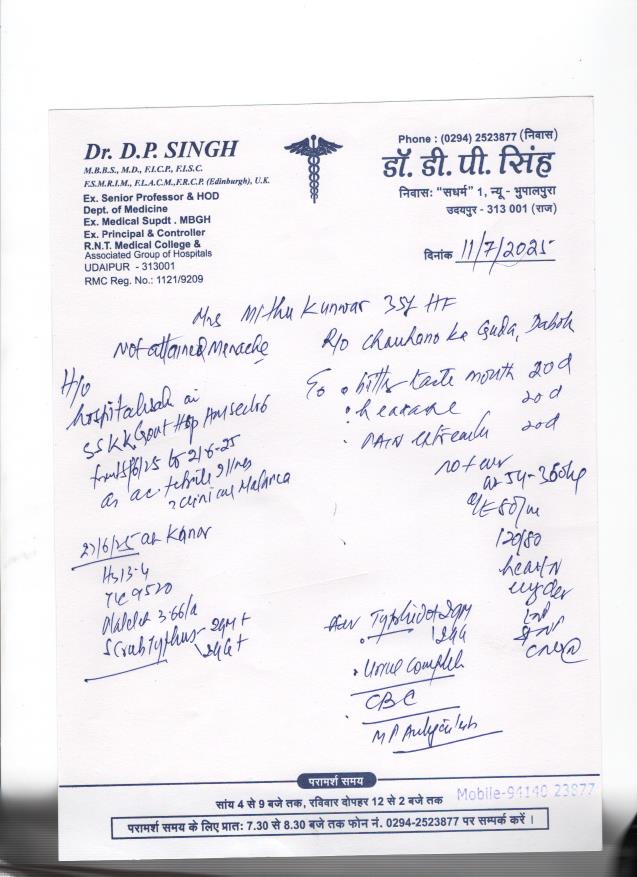 Dr. D.P. SINGH
M.B.B.S., M.D., F.I.C.P., F.I.S.C.
F.S.M.R.I.M., F.L.A.C.M., F.R.C.P. (Edinburgh), U.K.
Ex. Senior Professor & HOD
Dept. of Medicine
Ex. Medical Supdt . MBGH
Ex. Principal & Controller
R.N.T. Medical College &
Associated Group of Hospitals
UDAIPUR - 313001
RMC Reg. No.: 1121/9209
Phone : (0294) 2523877 (निवास)
डॉ. डी. पी. सिंह
निवासः "सधर्म" 1, न्यू - भुपालपुरा
उदयपुर - 313 001 (राज)
दिनांक 11/7/2025
Mrs Mithu Kunwar 35y HF
Not attained Menache
R/o Chauhano ka Guda, Dabok
H/o
SS KK Govt Hosp
from 15/6/25 to 21/6-25
as ac febrile illnes
? clinical Malaria
bitter taste mouth 20d
20d
PAIN 20d
120/80
heart N
27/6/25 at Kanor
Hb 13.4
TLC 9520
Platelet 3.66/a
Scrub Typhus - 2gM+
2gG+
Adv Typhidot 2gM
2gG
Urine Complete
CBC
MP
परामर्श समय
सांय 4 से 9 बजे तक, रविवार दोपहर 12 से 2 बजे तक
Mobile-94140 23877
परामर्श समय के लिए प्रातः 7.30 से 8.30 बजे तक फोन नं. 0294-2523877 पर सम्पर्क करें ।